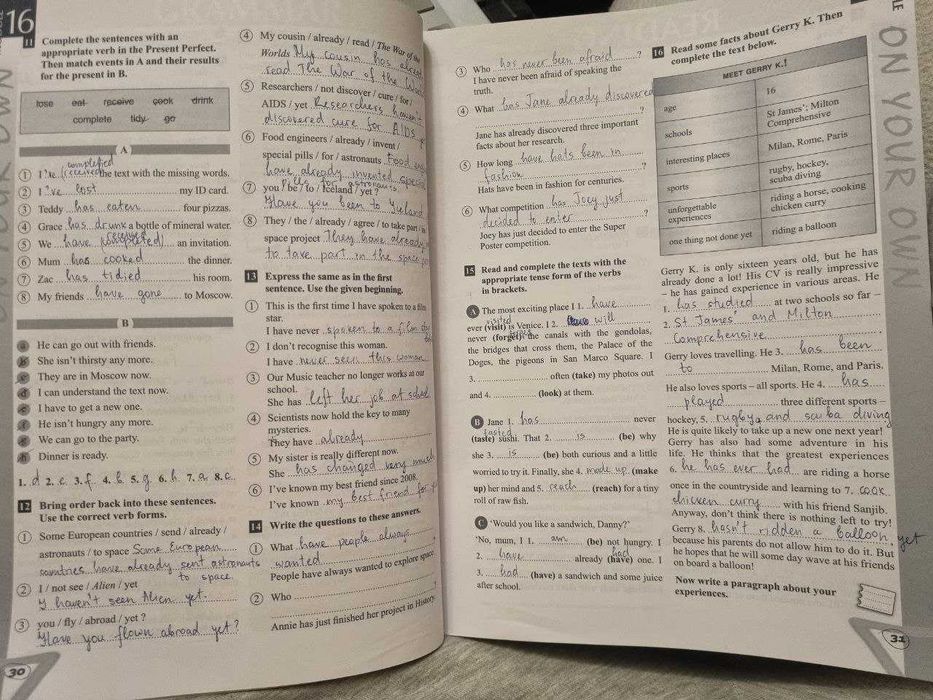 16
ON YOUR OWN
11 Complete the sentences with an
appropriate verb in the Present Perfect.
Then match events in A and their results
for the present in B.
lose eat receive cook drink
complete tidy go
A
completed
1 I've (received) the text with the missing words.
2 I 've lost my ID card.
3 Teddy has eaten four pizzas.
4 Grace has drunk a bottle of mineral water.
received
5 We have (completed) an invitation.
6 Mum has cooked the dinner.
7 Zac has tidied his room.
8 My friends have gone to Moscow.
B
a He can go out with friends.
b She isn't thirsty any more.
c They are in Moscow now.
d I can understand the text now.
e I have to get a new one.
f He isn't hungry any more.
g We can go to the party.
h Dinner is ready.
1. d 2. e 3. f 4. b 5. g 6. h 7. a 8. c
12 Bring order back into these sentences.
Use the correct verb forms.
1 Some European countries / send / already /
astronauts / to space Some European
countries have already sent astronauts
to space.
2 I / not see / Alien / yet
I haven't seen Alien yet.
3 you / fly / abroad / yet ?
Have you flown abroad yet?
30
4 My cousin / already / read / The War of the
Worlds My cousin has
read The War of the
5 Researchers / not discover / cure / for /
AIDS / yet Researchers haven't
discovered cure for AIDS
6 Food engineers / already / invent /
special pills / for / astronauts Food
have already invented special
pills for astronauts.
7 you / be / to / Iceland / yet ?
Have you been to Iceland
8 They / the / already / agree / to take part / in
space project They have already
to take part in the space
13 Express the same as in the first
sentence. Use the given beginning.
1 This is the first time I have spoken to a film
star.
I have never spoken to a film
2 I don't recognise this woman.
I have never seen this woman
3 Our Music teacher no longer works at our
school.
She has left her job at school
4 Scientists now hold the key to many
mysteries.
They have already
5 My sister is really different now.
She has changed very much
6 I've known my best friend since 2008.
I've known my best friend for
14 Write the questions to these answers.
1 What have people always
wanted
People have always wanted to explore space.
2 Who
Annie has just finished her project in History.
3 Who has never been afraid ?
I have never been afraid of speaking the
truth.
4 What has Jane already discovered
?
Jane has already discovered three important
facts about her research.
5 How long have hats been in
fashion ?
Hats have been in fashion for centuries.
6 What competition has Joey just
decided to enter ?
Joey has just decided to enter the Super
Poster competition.
15 Read and complete the texts with the
appropriate tense form of the verbs
in brackets.
A The most exciting place I 1. have
visited
ever (visit) is Venice. I 2. will
forget
never (forget) the canals with the gondolas,
the bridges that cross them, the Palace of the
Doges, the pigeons in San Marco Square. I
3. often (take) my photos out
and 4. (look) at them.
B Jane 1. has never
tasted
(taste) sushi. That 2. is (be) why
she 3. is (be) both curious and a little
worried to try it. Finally, she 4. made up (make
up) her mind and 5. reach (reach) for a tiny
roll of raw fish.
C 'Would you like a sandwich, Danny?'
'No, mum, I 1. am (be) not hungry. I
had
2. have already (have) one. I
3. had (have) a sandwich and some juice
after school.
16 Read some facts about Gerry K. Then
complete the text below.
MEET GERRY K.!
age 16
schools St James'; Milton Comprehensive
interesting places Milan, Rome, Paris
sports rugby, hockey, scuba diving
unforgettable experiences riding a horse, cooking chicken curry
one thing not done yet riding a balloon
Gerry K. is only sixteen years old, but he has
already done a lot! His CV is really impressive
– he has gained experience in various areas. He
1. has studied at two schools so far –
2. St James' and Milton
Comprehensive.
Gerry loves travelling. He 3. has been
to Milan, Rome, and Paris.
He also loves sports – all sports. He 4. has
played three different sports –
hockey, 5. rugby, and scuba diving
He is quite likely to take up a new one next year!
Gerry has also had some adventure in his
life. He thinks that the greatest experiences
6. he has ever had are riding a horse
once in the countryside and learning to 7. cook
chicken curry with his friend Sanjib.
Anyway, don't think there is nothing left to try!
Gerry 8. hasn't ridden a balloon yet
because his parents do not allow him to do it. But
he hopes that he will some day wave at his friends
on board a balloon!
Now write a paragraph about your
experiences.
31
ON YOUR OWN